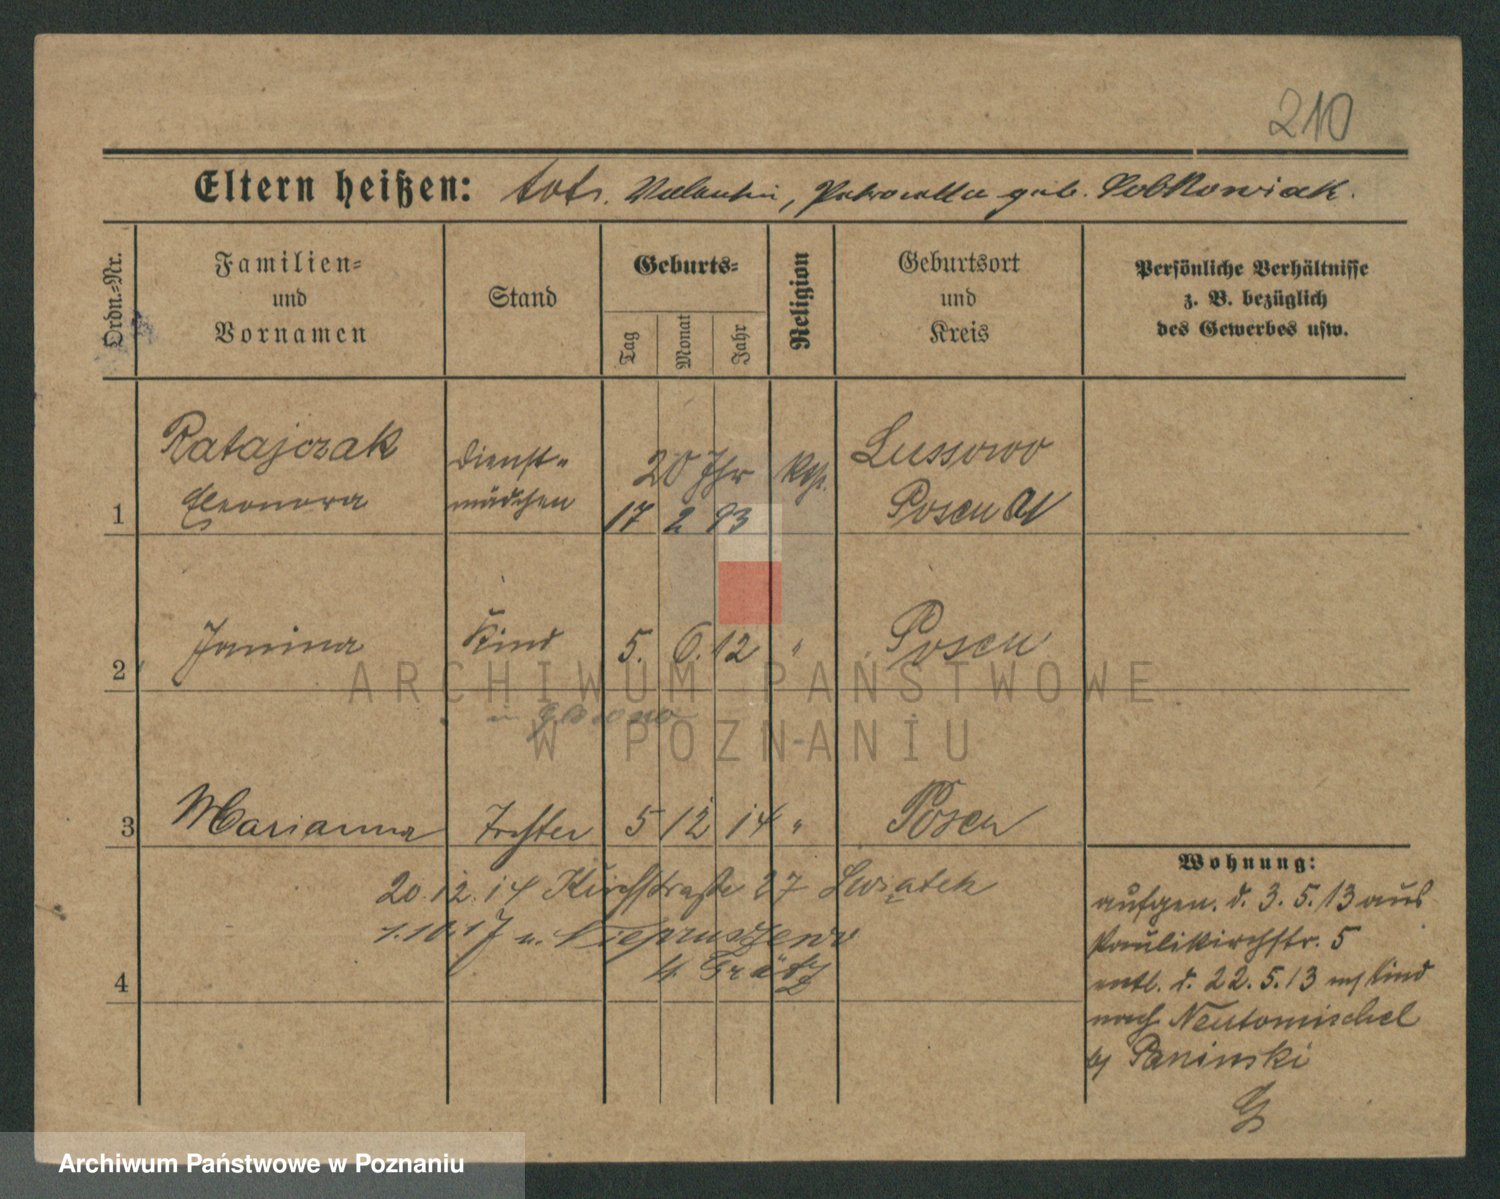 210
Eltern heißen: tots. Valentin, Petronella geb. Sobkowiak.
Ordn.=Nr.
Familien=
und
Vornamen
Stand
Geburts=
Tag
Monat
Jahr
Religion
Geburtsort
und
Kreis
Persönliche Verhältnisse
z. B. bezüglich
des Gewerbes usw.
1
Ratajczak
Eleonora
Dienst=
mädchen
20 Jhr
17 2 93
kath.
Lussowo
Posen W
2
Janina
Kind
5. 6. 12
"
Posen
3
Marianna
Tochter
5 12 14
"
Posen
20.12.14 Kirchstraße 27 Swiatek
1.10.17 n. Niepruszewo
K. Grätz
4
Wohnung:
aufgen. d. 3.5.13 aus
Paulikirchstr. 5
entl. d. 22.5.13 m/ Kind
nach Neutomischel
b/ Paninski
ARCHIWUM PAŃSTWOWE
W POZNANIU
Archiwum Państwowe w Poznaniu